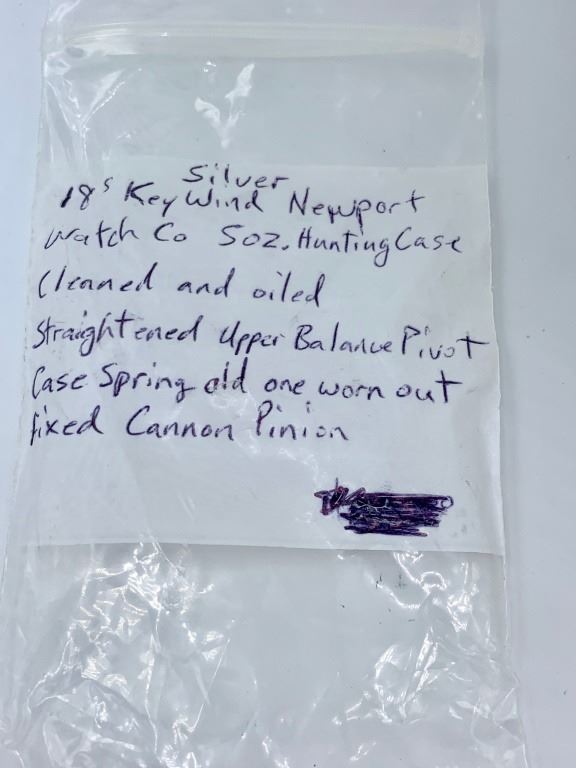 Silver
18s Key Wind Newport
Watch Co 5oz. Hunting Case
Cleaned and oiled
Straightened Upper Balance Pivot
Case Spring old one worn out
fixed Cannon Pinion